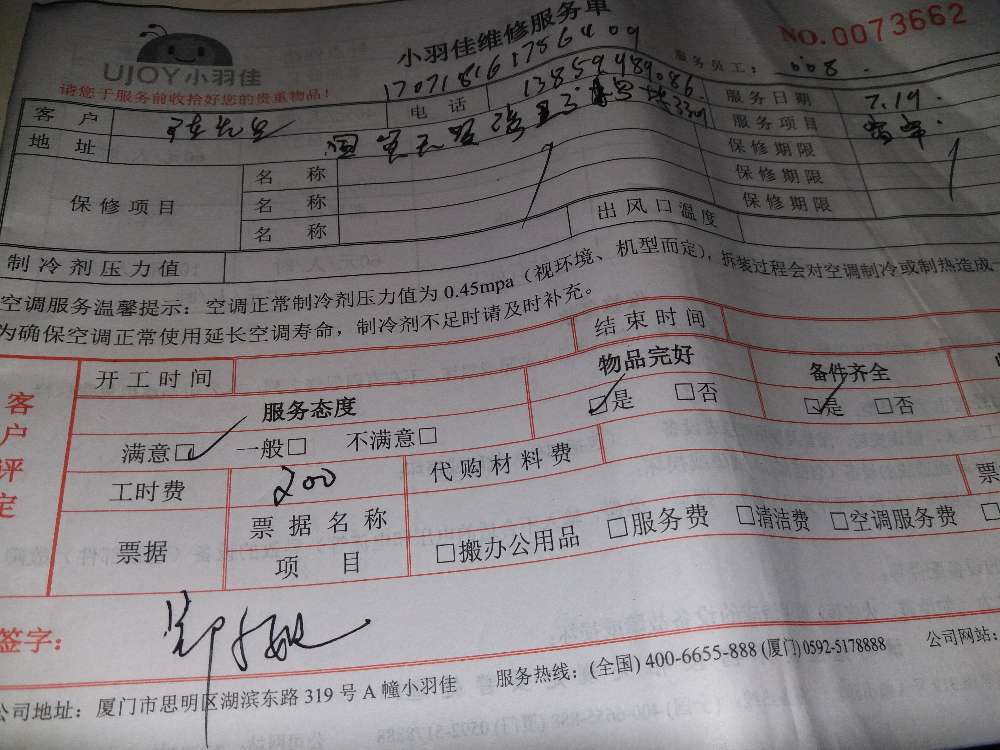 UJOY小羽佳
小羽佳维修服务单
NO.0073662
请您于服务前收拾好您的贵重物品!
服务员工: 008.
客户 陈先生 电话 13859489086. 服务日期 7.19.
地址 服务项目
保修项目 名称 保修期限
名称 保修期限
名称 保修期限
制冷剂压力值 出风口温度
空调服务温馨提示:空调正常制冷剂压力值为 0.45mpa(视环境、机型而定),拆装过程会对空调制冷或制热造成一
为确保空调正常使用延长空调寿命,制冷剂不足时请及时补充。
客户评定
开工时间 结束时间
服务态度 物品完好 备件齐全
满意□ 一般□ 不满意□ □是 □否 □是 □否
工时费 200 代购材料费
票据 票据名称 票
项目 □搬办公用品 □服务费 □清洁费 □空调服务费
签字:
公司地址:厦门市思明区湖滨东路 319 号 A 幢小羽佳 服务热线:(全国) 400-6655-888 (厦门) 0592-5178888 公司网站: